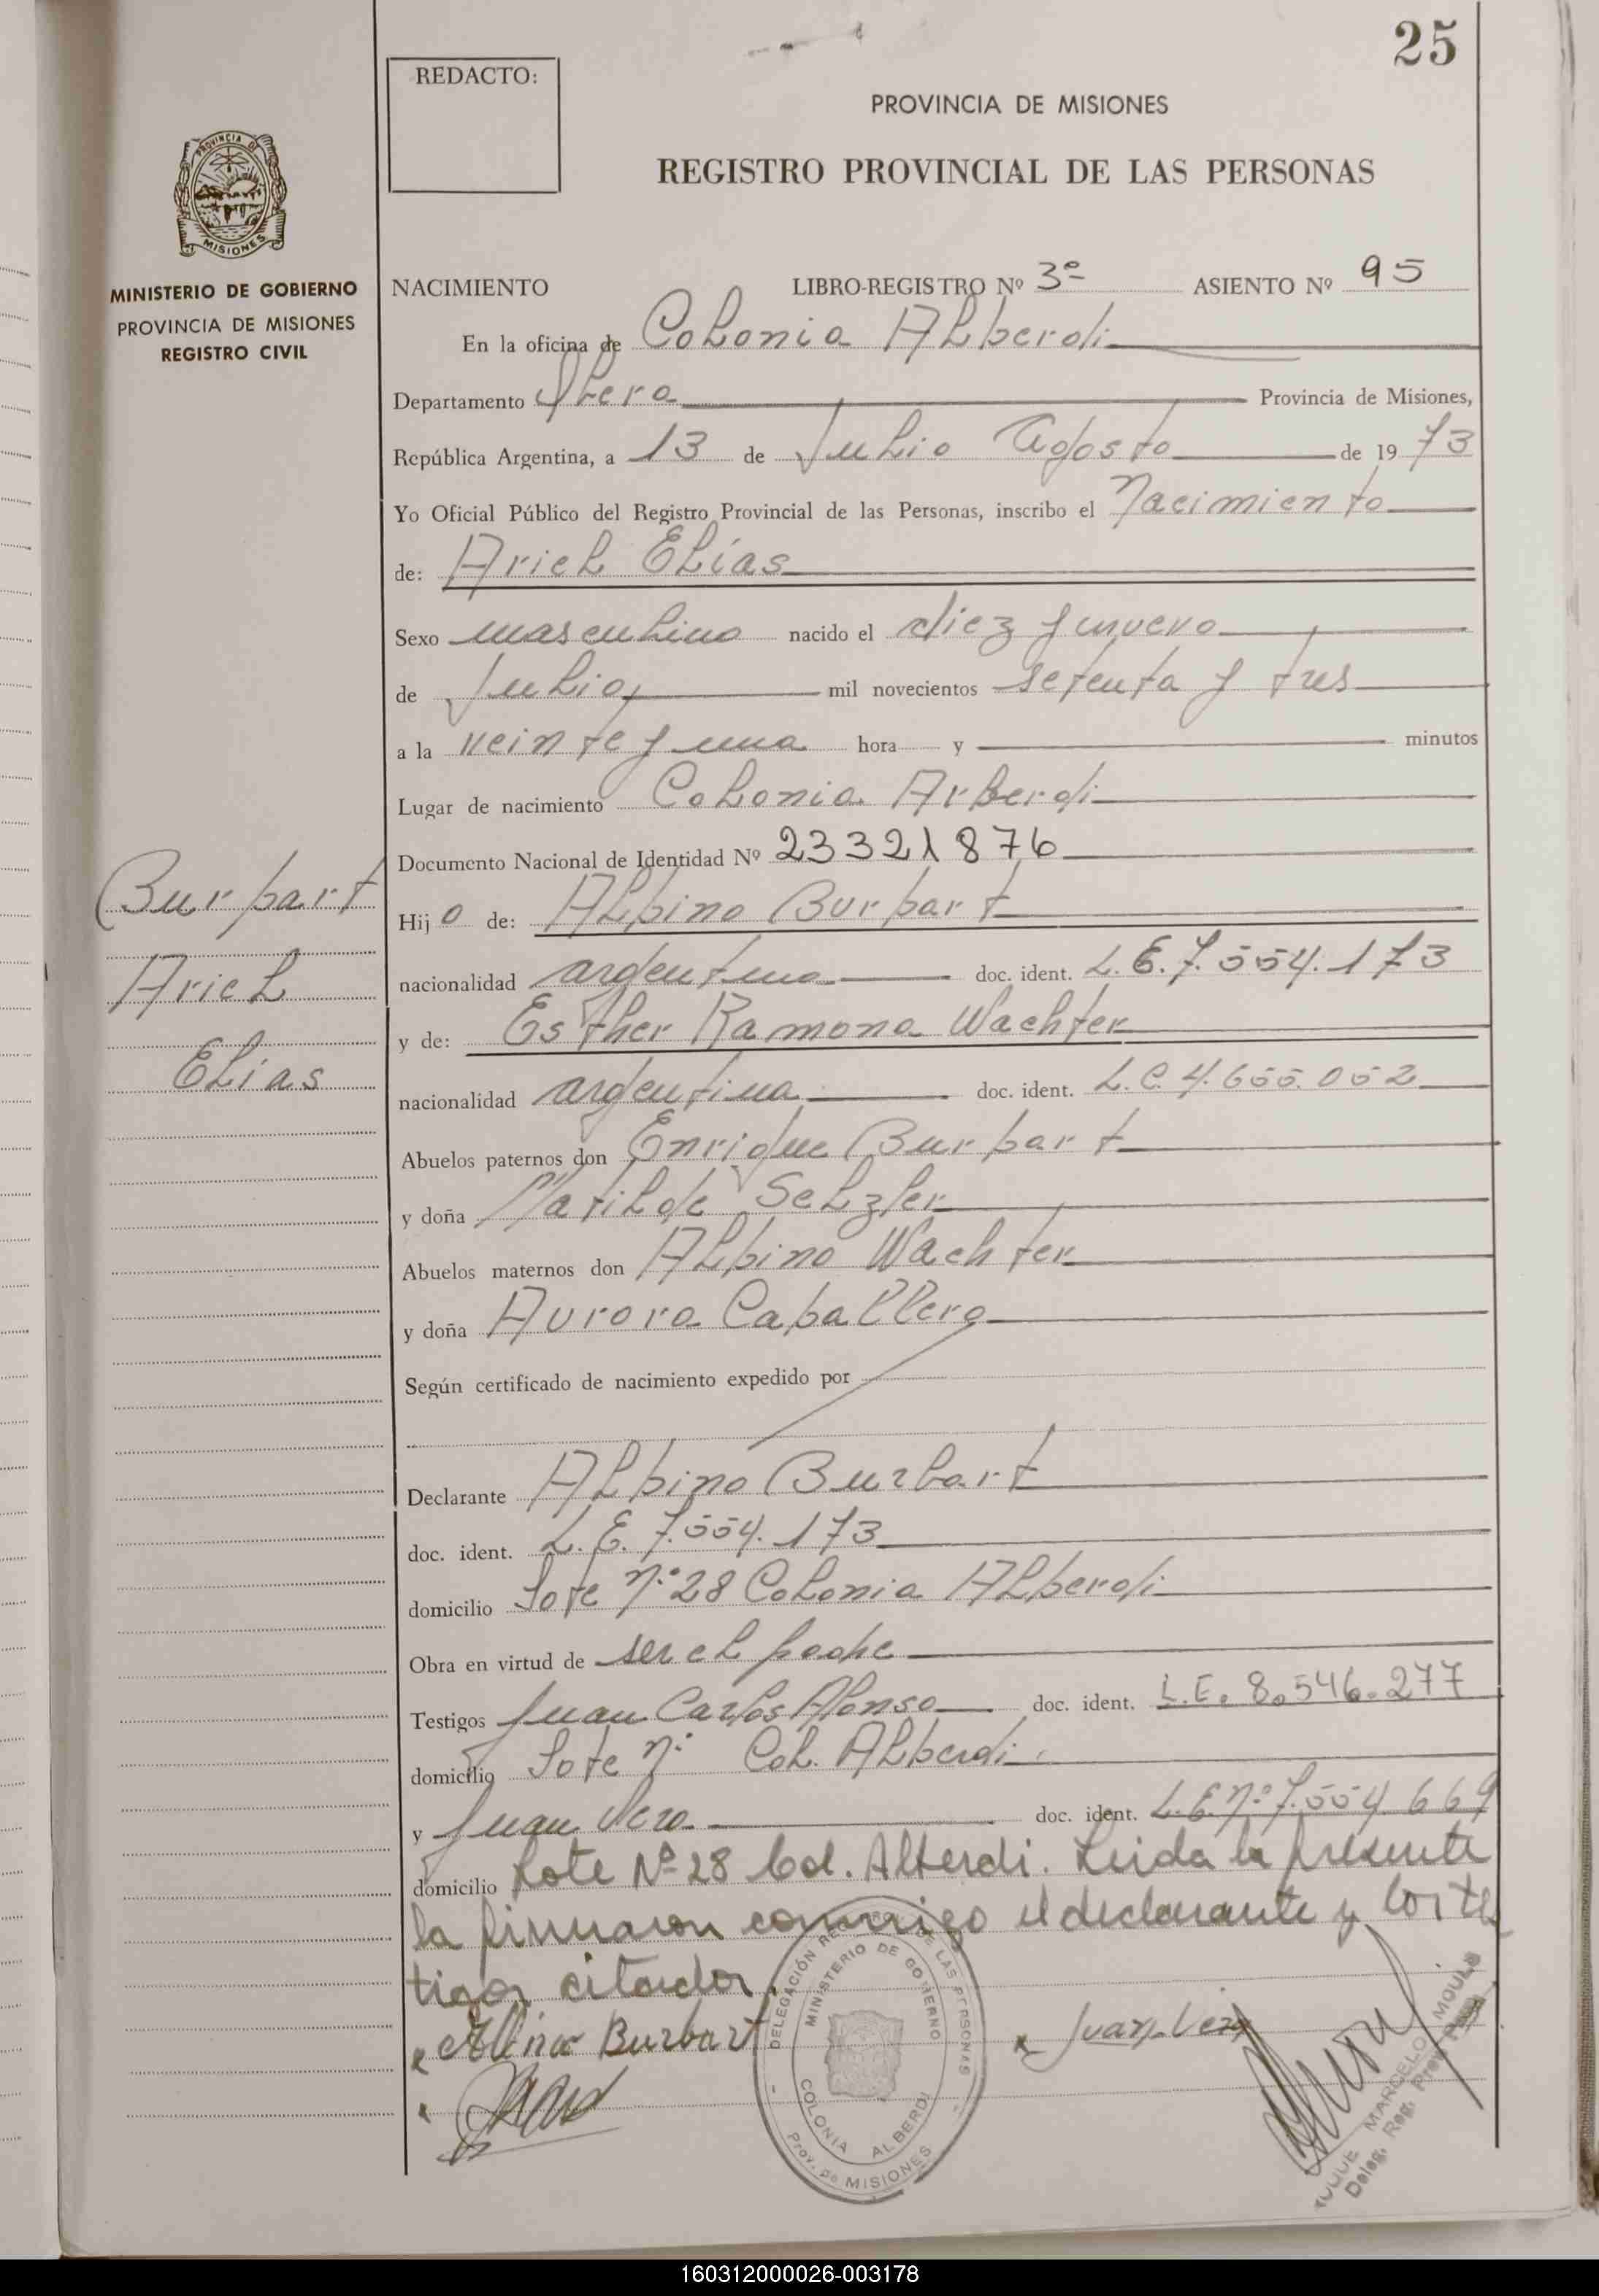 25
REDACTO:
PROVINCIA DE MISIONES
REGISTRO PROVINCIAL DE LAS PERSONAS
PROVINCIA DE
MISIONES
MINISTERIO DE GOBIERNO
PROVINCIA DE MISIONES
REGISTRO CIVIL
NACIMIENTO LIBRO-REGISTRO Nº 3º ASIENTO Nº 95
En la oficina de Colonia Alberdi
Departamento Obera Provincia de Misiones,
República Argentina, a 13 de Julio Agosto de 1973
Yo Oficial Público del Registro Provincial de las Personas, inscribo el Nacimiento
de: Ariel Elías
Sexo masculino nacido el diez y nueve
de Julio, mil novecientos setenta y tres
a la veinte y una hora y minutos
Lugar de nacimiento Colonia Arberdi
Documento Nacional de Identidad Nº 23321876
Burbart
Ariel
Elías
Hijo de: Albino Burbart
nacionalidad argentino doc. ident. L.E. 7.554.173
y de: Esther Ramona Wachter
nacionalidad argentina doc. ident. L.C. 4.655.052
Abuelos paternos don Enrique Burbart
y doña Matilde Selzler
Abuelos maternos don Albino Wachter
y doña Aurora Caballero
Según certificado de nacimiento expedido por
Declarante Albino Burbart
doc. ident. L.E. 7.554.173
domicilio Lote Nº 28 Colonia Alberdi
Obra en virtud de ser el padre
Testigos Juan Carlos Alonso doc. ident. L.E. 8.546.277
domicilio Lote Nº Col. Alberdi.
y Juan Vera doc. ident. L.E. Nº 7.554.669
domicilio Lote Nº 28 Col. Alberdi. Leida la presente
la firmaron conmigo el declarante y los tes
tigos citados.
Albino Burbart
Juan Vera
DELEGACIÓN REGISTRO DE LAS PERSONAS
MINISTERIO DE GOBIERNO
COLONIA ALBERDI
Prov. de MISIONES
ROQUE MARCELO MOULS
Deleg. Reg. Prov.
160312000026-003178